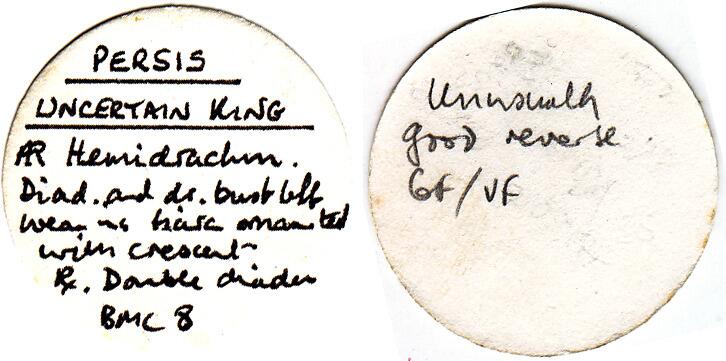 PERSIS
UNCERTAIN KING
AR Hemidrachm.
Diad. and dr. bust left
wearing tiara ornamented
with crescent
R. Double diadem
BMC 8
Unusually
good reverse.
GF/VF